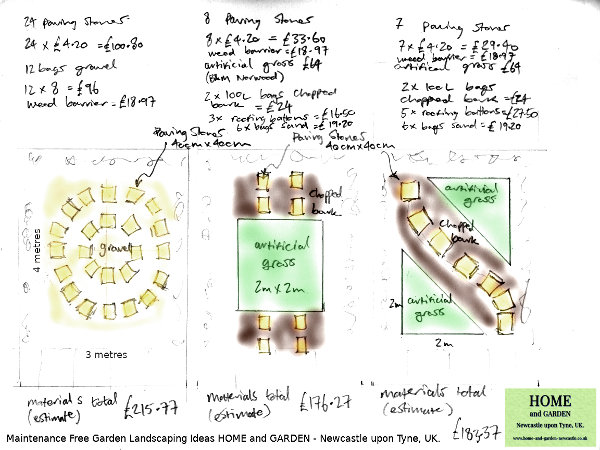 24 Paving Stones
24 x £4.20 = £100.80
12 bags gravel
12 x 8 = £96
weed barrier = £18.97
8 Paving Stones
8 x £4.20 = £33.60
weed barrier = £18.97
artificial grass £64
(B&M Norwood)
2 x 100L bags chopped
bark = £24
3x roofing battons = £16.50
6x bags sand = £19.20
7 Paving Stones
7 x £4.20 = £29.40
weed barrier = £18.97
artificial grass £64
2 x 100L bags
chopped bark = £24
5 x roofing battons £27.50
6x bags sand = £19.20
Paving Stones
40cm x 40cm
Paving Stones
40cm x 40cm
gravel
4 metres
3 metres
chopped
bark
artificial
grass
2m x 2m
artificial
grass
chopped
bark
2m
artificial
grass
2m
materials total
(estimate)
£215.77
materials total
(estimate)
£176.27
materials total
(estimate)
£183.37
HOME
and GARDEN
Newcastle upon Tyne, UK.
www.home-and-garden-newcastle.co.uk
Maintenance Free Garden Landscaping Ideas HOME and GARDEN - Newcastle upon Tyne, UK.